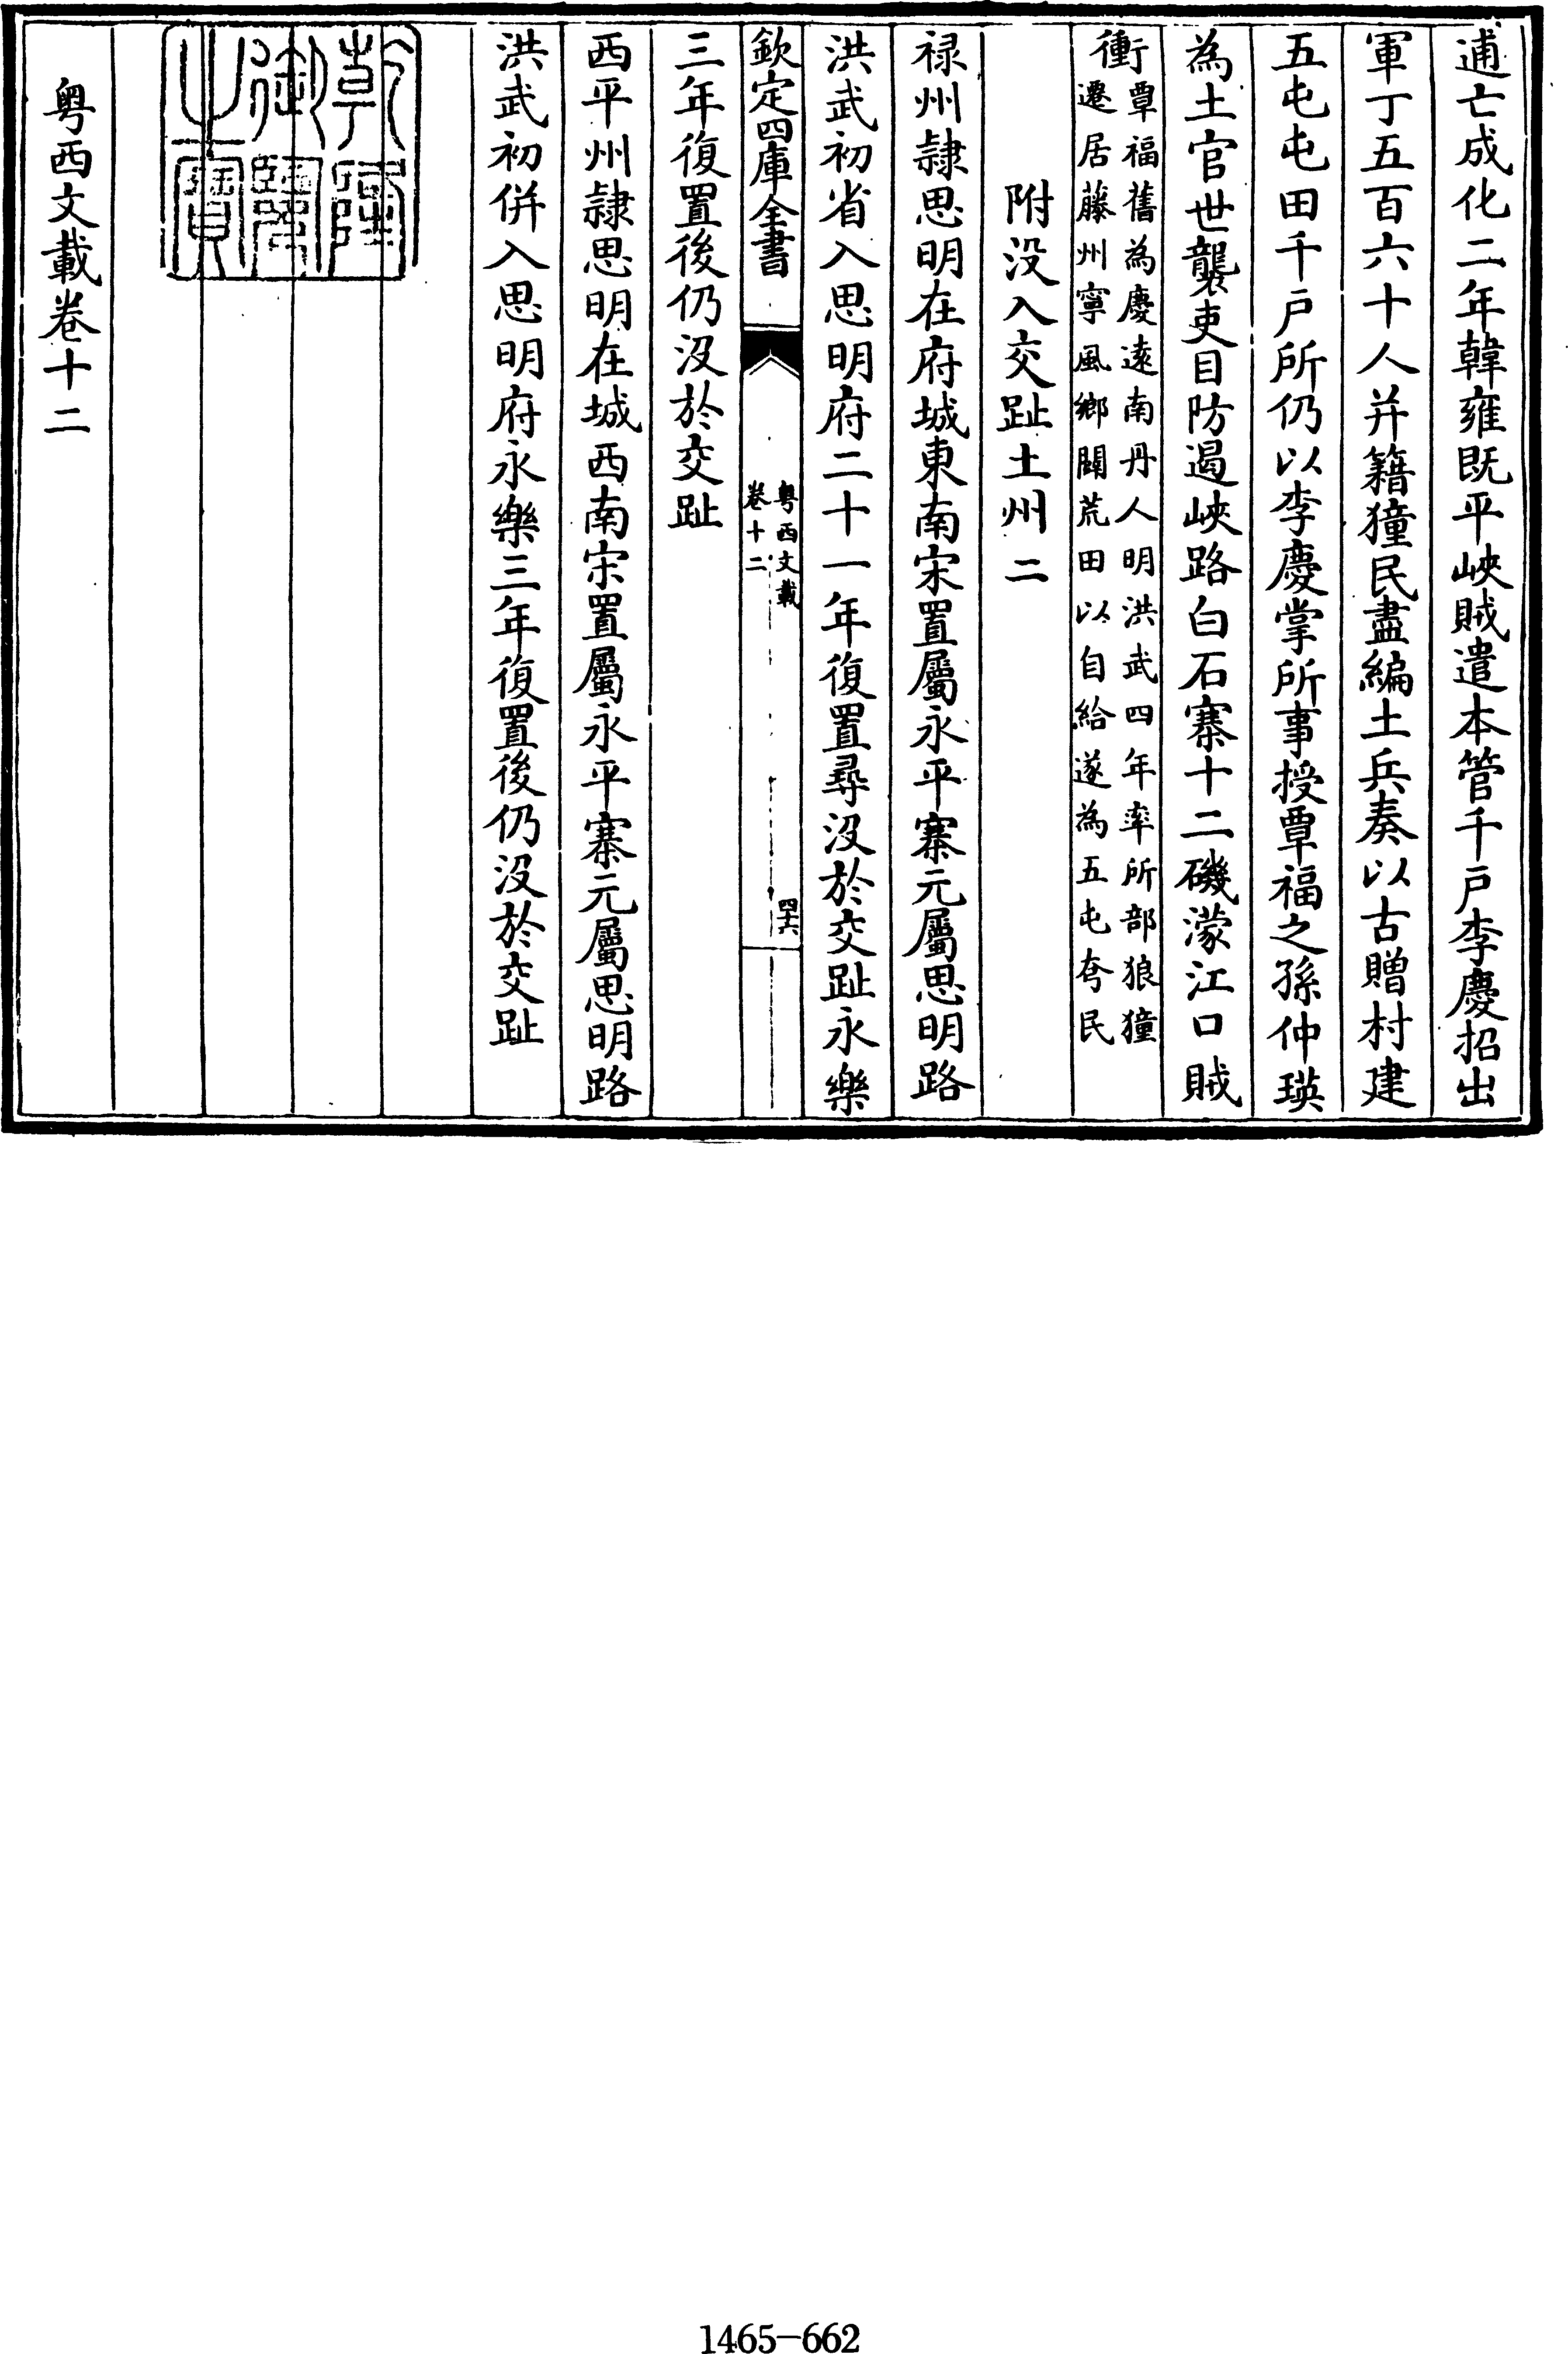 逋亡成化二年韓雍既平峽賊遣本管千戸李慶招出
軍丁五百六十人并籍獞民盡編土兵奏以古贈村建
五屯屯田千戸所仍以李慶掌所事授覃福之孫仲瑛
為土官世襲吏目防遏峽路白石寨十二磯濛江口賊
衝覃福舊為慶逺南丹人明洪武四年率所部狼獞
遷居藤州寧風鄉闢荒田以自給遂為五屯夸民
附没入交趾土州二
禄州隷思明在府城東南宋置屬永平寨元屬思明路
洪武初省入思明府二十一年復置尋没於交趾永樂
三年復置後仍没於交趾
欽定四庫全書
粤西文載
卷十二
四十六
西平州隷思明在城西南宋置屬永平寨元屬思明路
洪武初併入思明府永樂三年復置後仍没於交趾
乾隆御覽之寶
粤西文載卷十二
1465-662